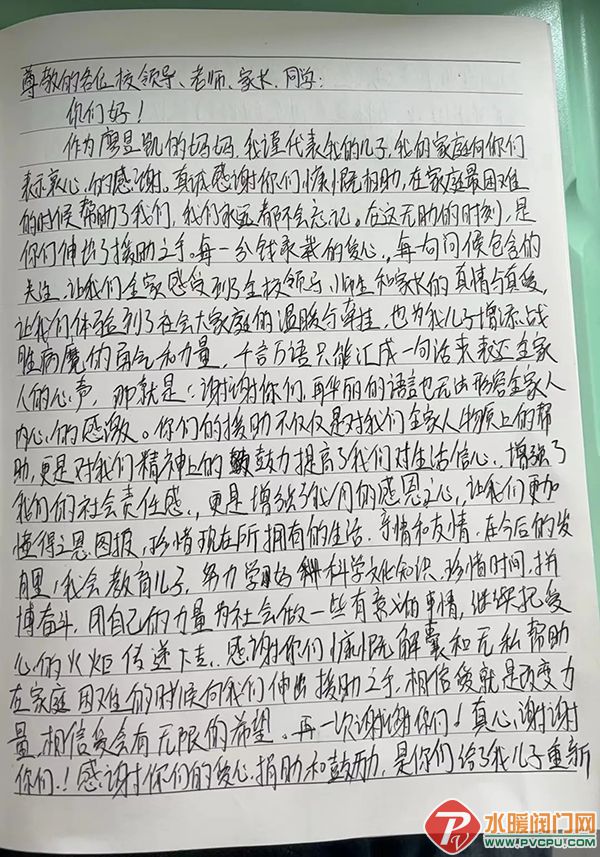 尊敬的各位校领导、老师、家长、同学:
你们好!
作为廖昱凯的妈妈,我谨代表我的儿子,我的家庭向你们
表示衷心的感谢。真诚感谢你们慷慨相助,在家庭最困难
的时候帮助了我们,我们永远都不会忘记。在这无助的时刻,是
你们伸出了援助之手。每一分钱承载的爱心,每句问候包含的
关注,让我们全家感受到了全校领导、师生和家长的真情与真爱,
让我们体验到了社会大家庭的温暖与牵挂,也为我儿子增添战
胜病魔的勇气和力量,千言万语只能汇成一句话来表达全家
人的心声,那就是:谢谢你们,再华丽的语言也无法形容全家人
内心的感激。你们的援助不仅仅是对我们全家人物质上的帮
助,更是对我们精神上的鼓力提高了我们对生活信心,增强了
我们的社会责任感,更是增强了我们的感恩之心,让我们更加
懂得了恩图报,珍惜现在所拥有的生活、亲情和友情,在今后的
里,我会教育儿子,努力学好科学文化知识,珍惜时间,拼
搏奋斗,用自己的力量为社会做一些有意义的事情,继续把爱
心的火炬传递下去,感谢你们慷慨解囊和无私帮助
在家庭困难的时候向我们伸出援助之手,相信爱就是改变力
量,相信爱会有无限的希望。再一次谢谢你们!真心谢谢
你们!感谢你们的爱心捐助和鼓励,是你们给了我儿子重新
水暖阀门网
WWW.PVCPU.COM